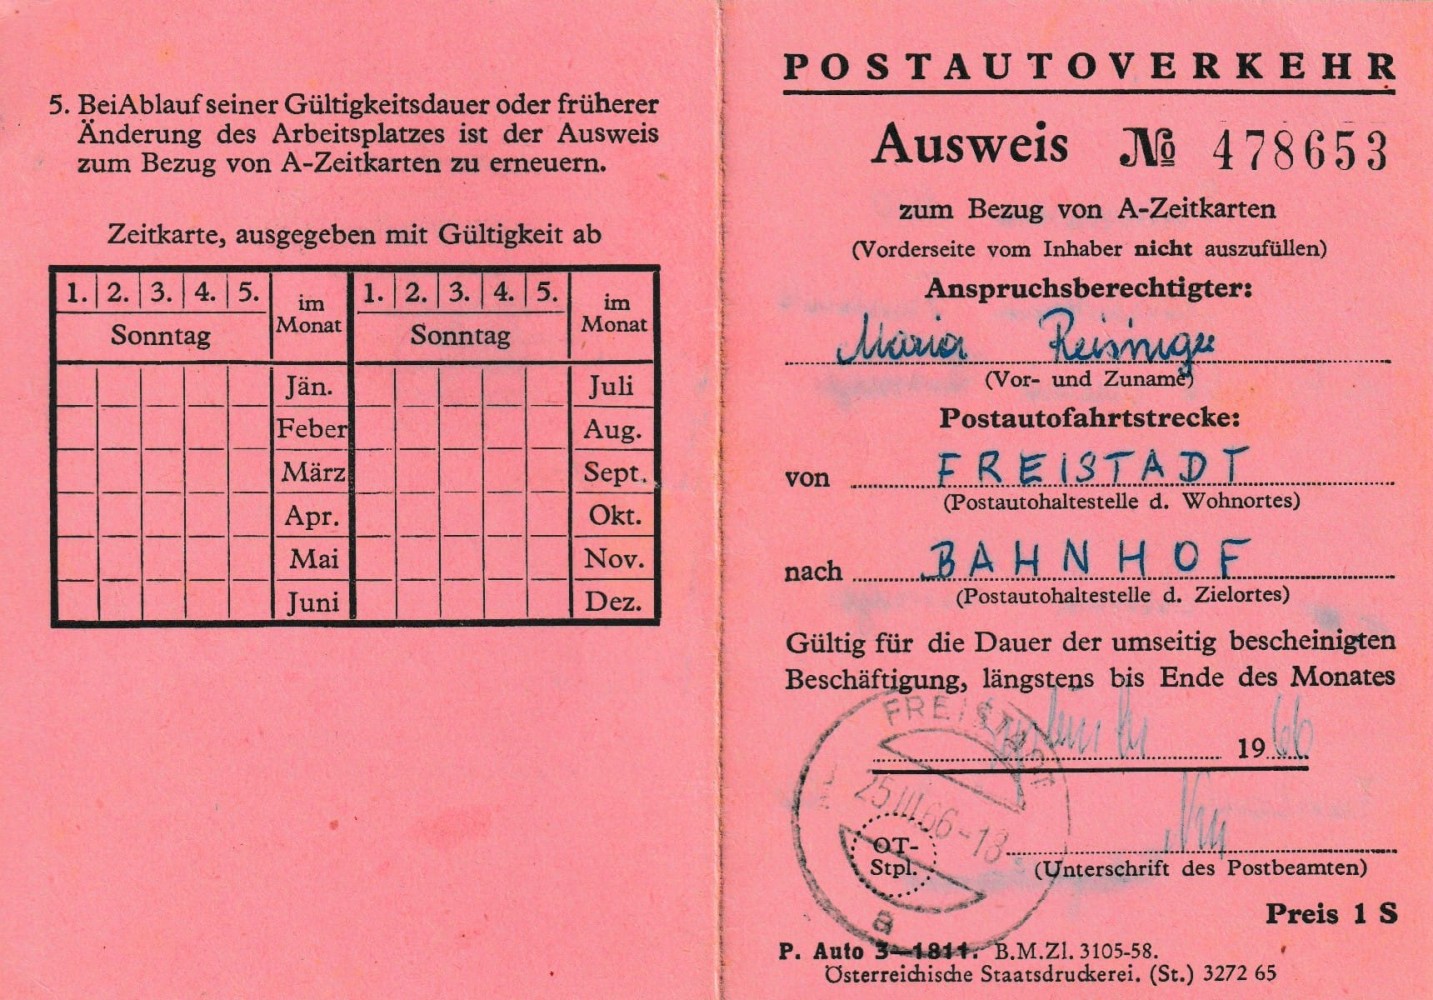 5. Bei Ablauf seiner Gültigkeitsdauer oder früherer
Änderung des Arbeitsplatzes ist der Ausweis
zum Bezug von A-Zeitkarten zu erneuern.
Zeitkarte, ausgegeben mit Gültigkeit ab
1. 2. 3. 4. 5. im Monat 1. 2. 3. 4. 5. im Monat
Sonntag Sonntag
Jän. Juli
Feber Aug.
März Sept.
Apr. Okt.
Mai Nov.
Juni Dez.
POSTAUTOVERKEHR
Ausweis № 478653
zum Bezug von A-Zeitkarten
(Vorderseite vom Inhaber nicht auszufüllen)
Anspruchsberechtigter:
Maria Reisinger
(Vor- und Zuname)
Postautofahrtstrecke:
von FREISTADT
(Postautohaltestelle d. Wohnortes)
nach BAHNHOF
(Postautohaltestelle d. Zielortes)
Gültig für die Dauer der umseitig bescheinigten
Beschäftigung, längstens bis Ende des Monates
19 66
FREISTADT
25.III.66-13
a
OT-
Stpl.
(Unterschrift des Postbeamten)
Preis 1 S
P. Auto 3—1811. B.M.Zl. 3105-58.
Österreichische Staatsdruckerei. (St.) 3272 65